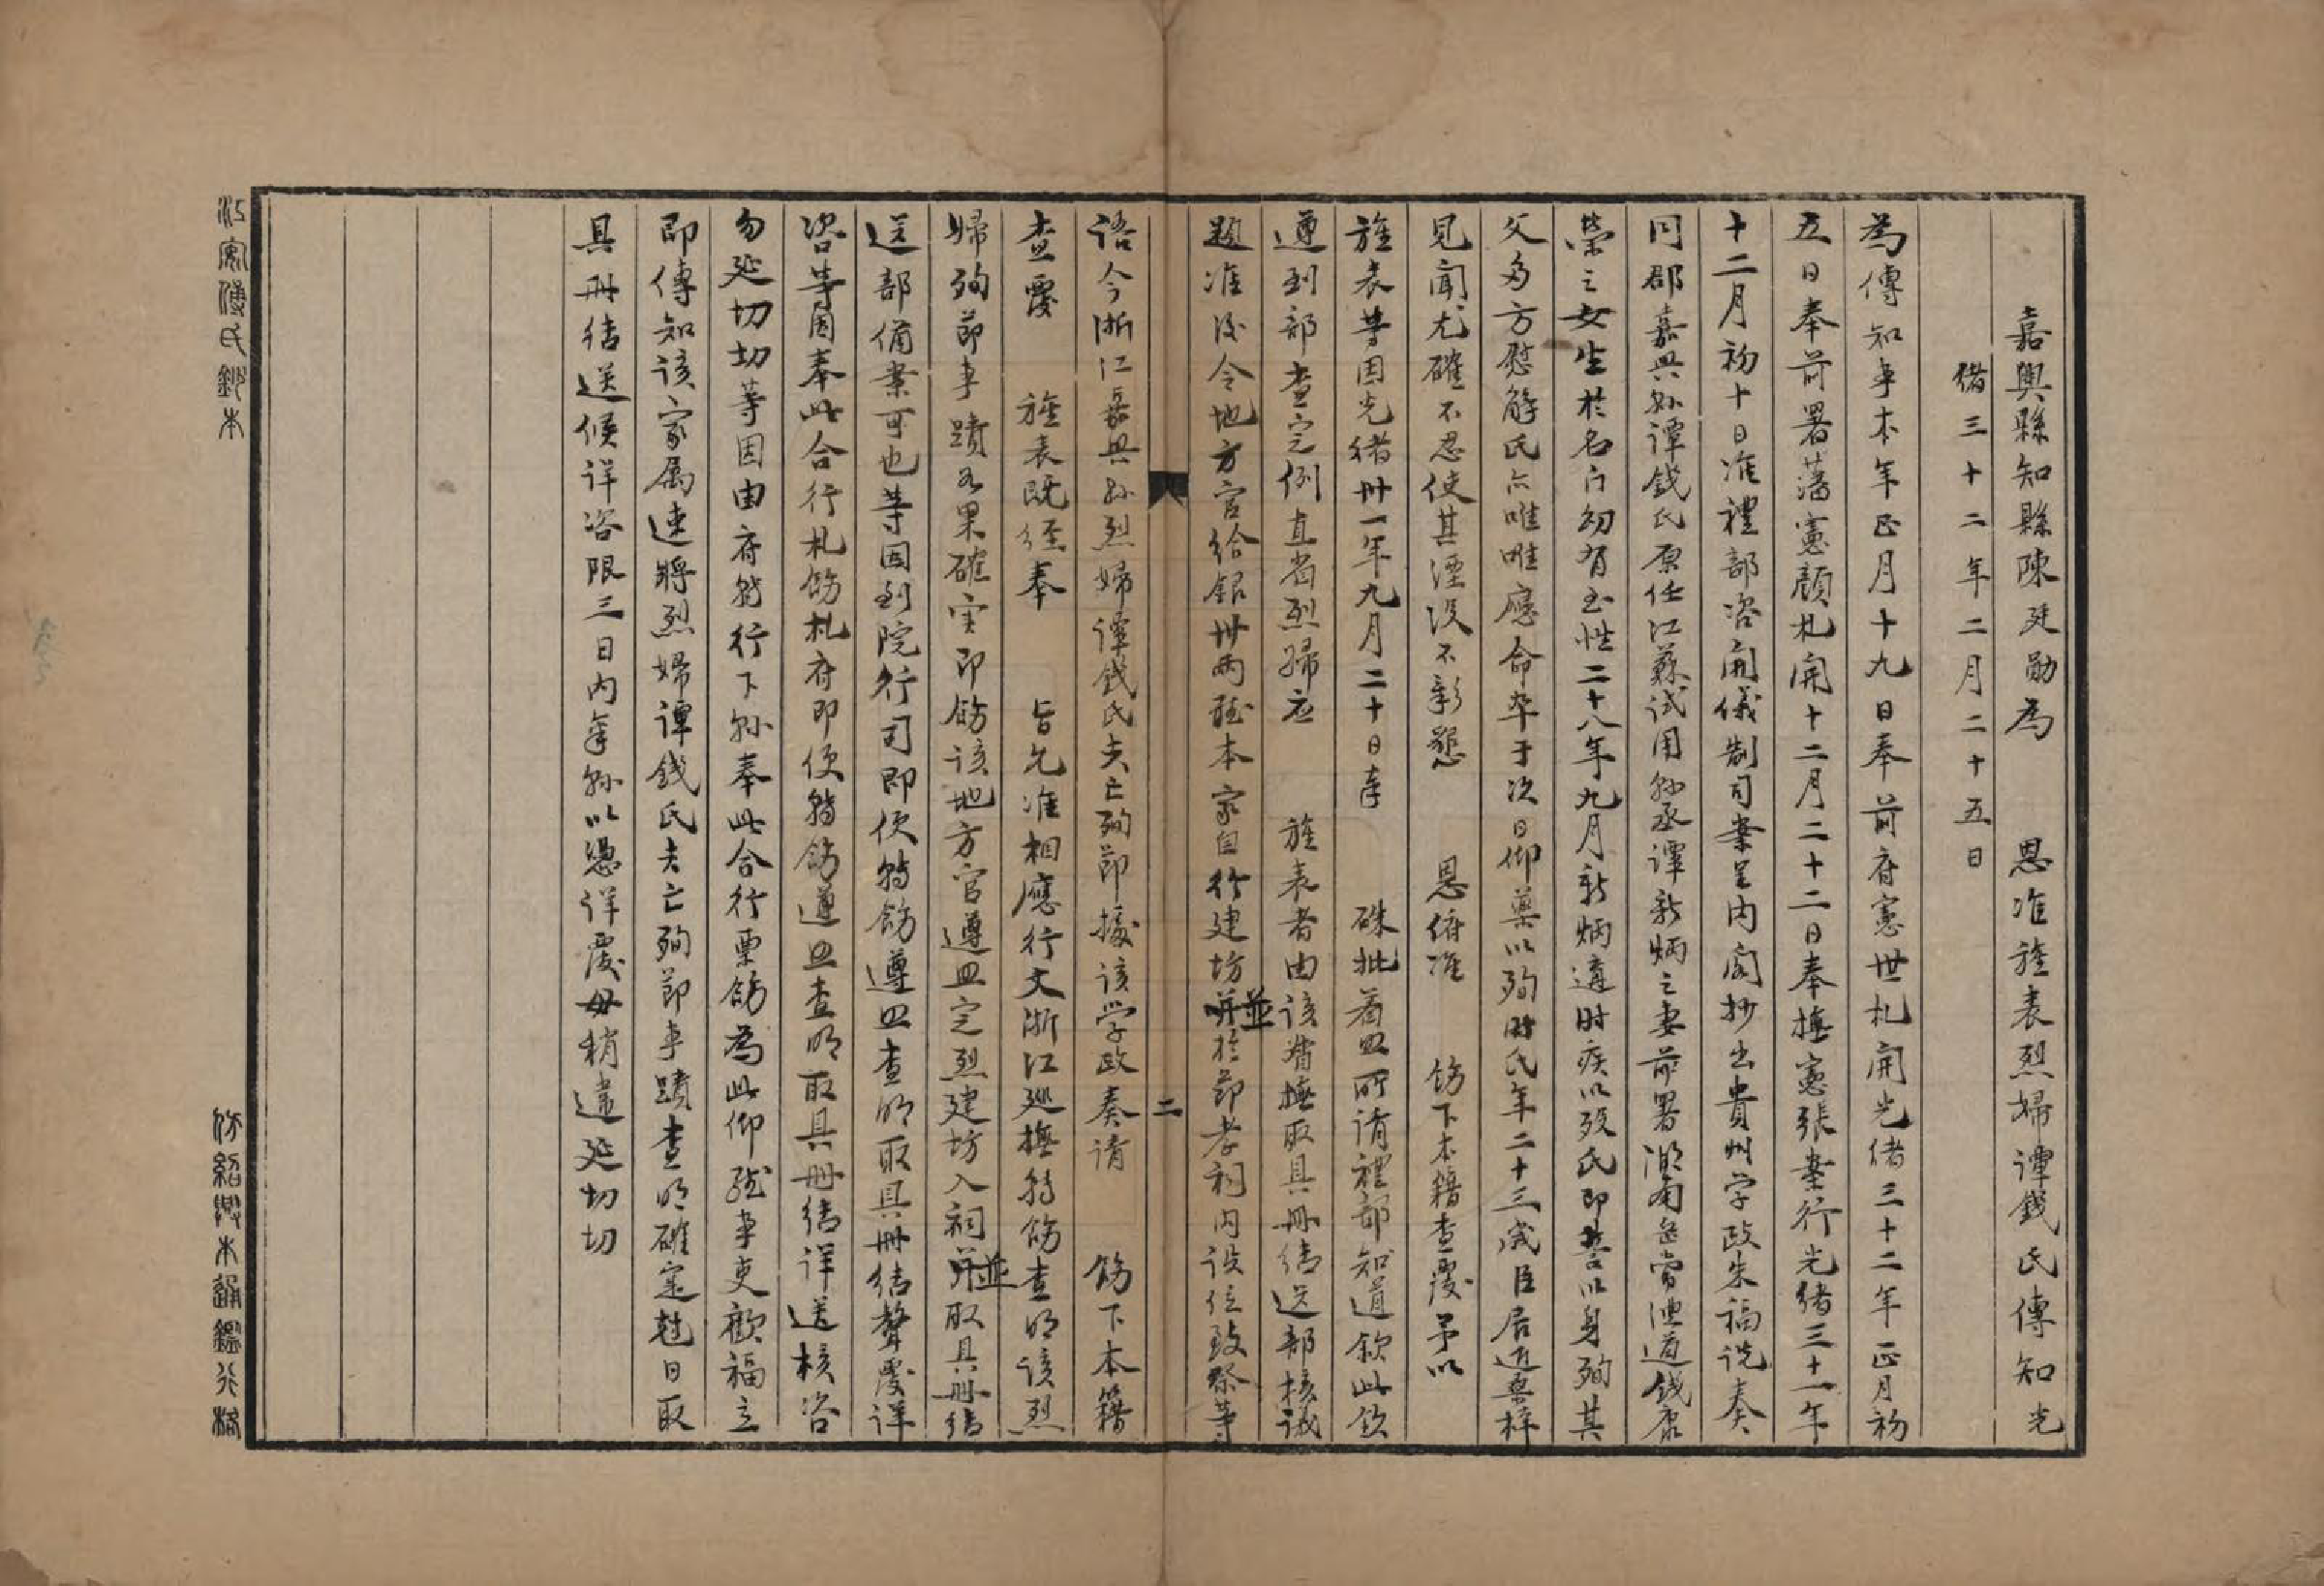 嘉興縣知縣陳廷勛為　恩准旌表烈婦譚錢氏傳知光
緒三十二年二月二十五日
為傳知事本年正月十九日奉前府憲世札開光緒三十二年正月初
五日奉前署藩憲顏札開十二月二十二日奉撫憲張案行光緒三十一年
十二月初十日准禮部咨開儀制司案呈內閣抄出貴州学政朱福詵奏
同郡嘉興县譚錢氏原任江蘇試用县丞譚新炳之妻前署湖南岳常澧道錢康
榮之女生於名门幼有至性二十八年九月新炳遘时疾以殁氏即誓以身殉其
父多方慰解氏亦唯唯應命卒于次日仰藥以殉时氏年二十三歲臣居近桑梓
見聞尤確不忍使其湮没不彰懇　恩俯准　飭下本籍查覆予以
旌表等因光緒卅一年九月二十日奉　硃批着照所请禮部知道欽此欽
遵到部查定例直省烈婦应　旌表者由该督撫取具册结送部核議
題准後令地方官给銀卅両聽本家自行建坊並於節孝祠內设位致祭等
语今浙江嘉興县烈婦譚錢氏夫亡殉節據该学政奏请　飭下本籍
查覆　旌表既经奉　旨允准相應行文浙江巡撫轉飭查明该烈
婦殉節事蹟如果確实即飭该地方官遵照定烈建坊入祠並取具册结
送部備案可也等因到院行司即便轉飭遵照查明取具册结聲覆详
咨等因奉此合行札飭札府即便轉飭遵照查明取具册结详送核咨
勿延切切等因由府轉行下县奉此合行票飭為此仰該事吏歡福立
即傳知该家属速將烈婦譚錢氏夫亡殉節事蹟查明確定尅日取
具册结送候详咨限三日内奉县以憑详覆毋稍違延切切
二
江安傅氏鈔本
仿紹興本通鑑行格